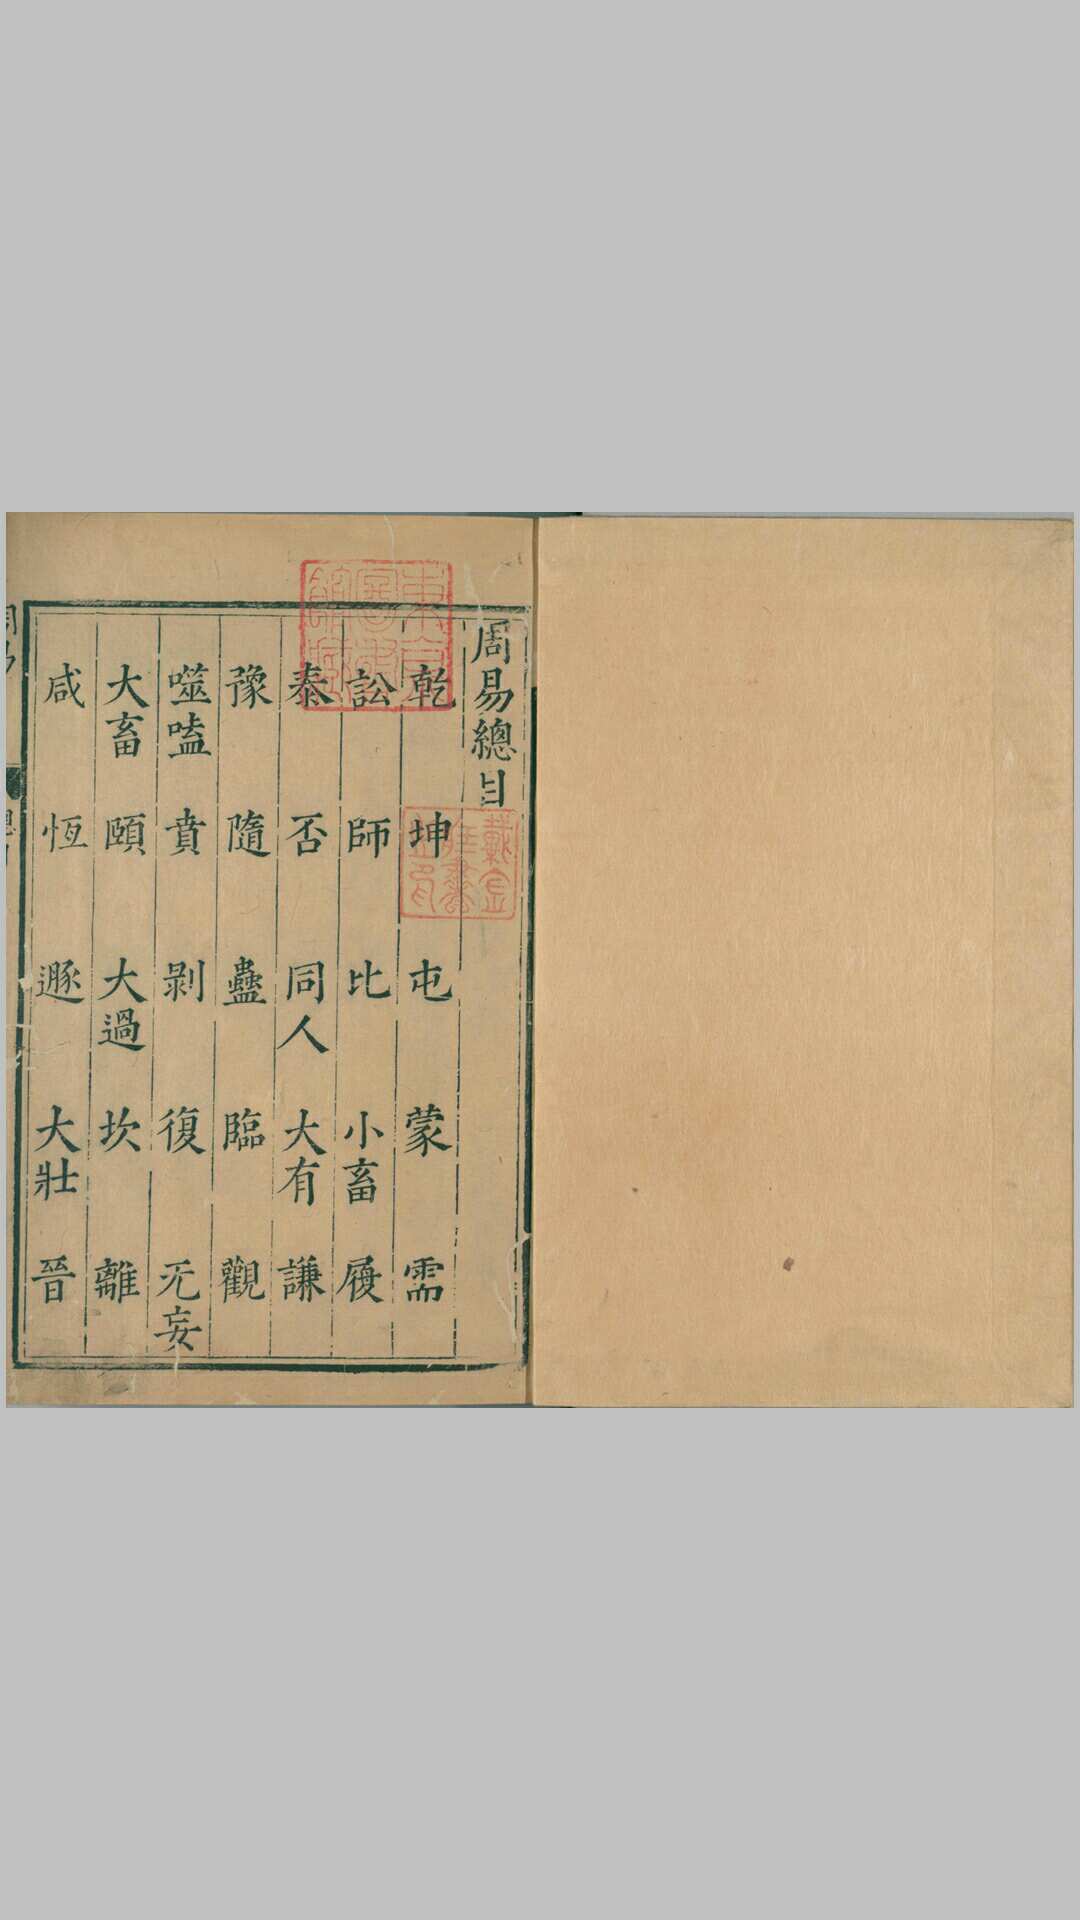 周易總目
乾 坤 屯 蒙 需
訟 師 比 小畜 履
泰 否 同人 大有 謙
豫 隨 蠱 臨 觀
噬嗑 賁 剥 復 无妄
大畜 頤 大過 坎 離
咸 恆 遯 大壯 晉